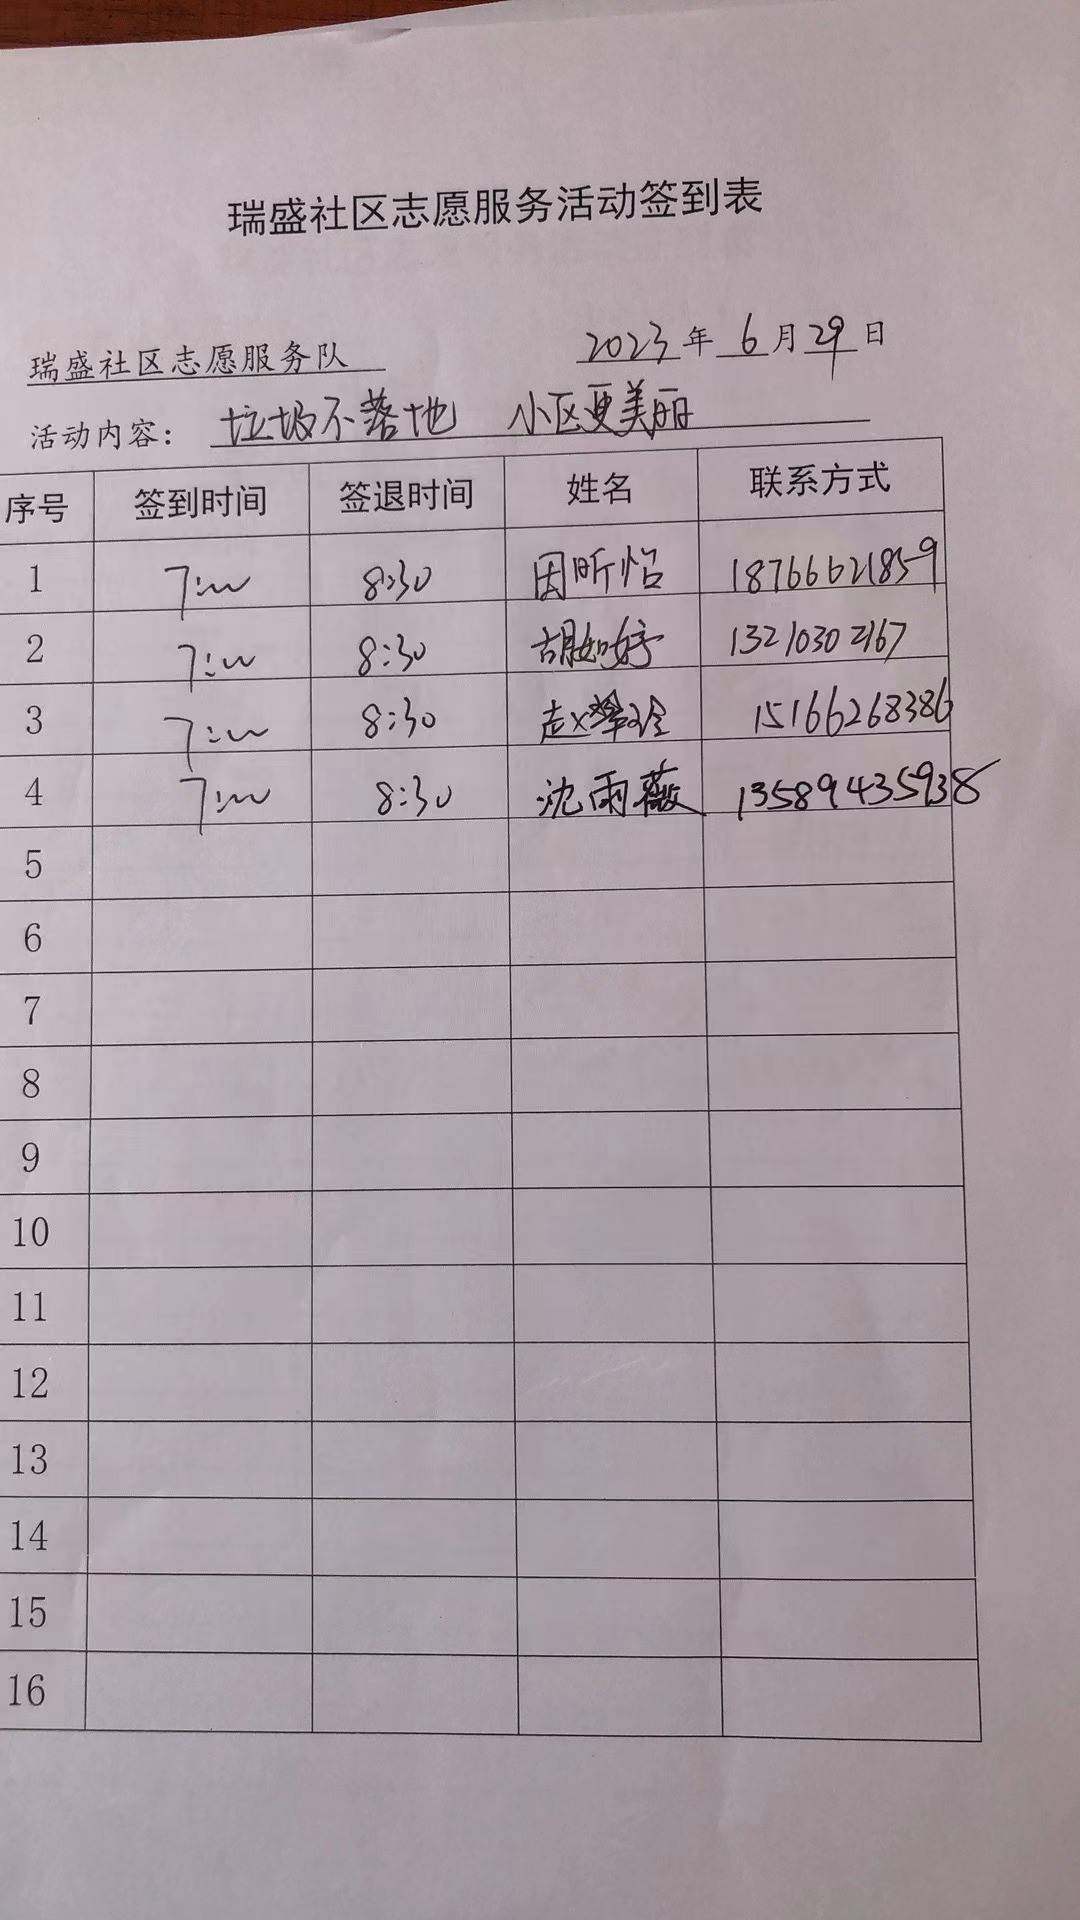 瑞盛社区志愿服务活动签到表
瑞盛社区志愿服务队 2023年 6月29日
活动内容: 垃圾不落地 小区更美丽
序号 签到时间 签退时间 姓名 联系方式
1 7:00 8:30 因昕怡 18766621859
2 7:00 8:30 胡如婷 13210302167
3 7:00 8:30 赵 15166268386
4 7:00 8:30 沈雨薇 13589435938
5
6
7
8
9
10
11
12
13
14
15
16